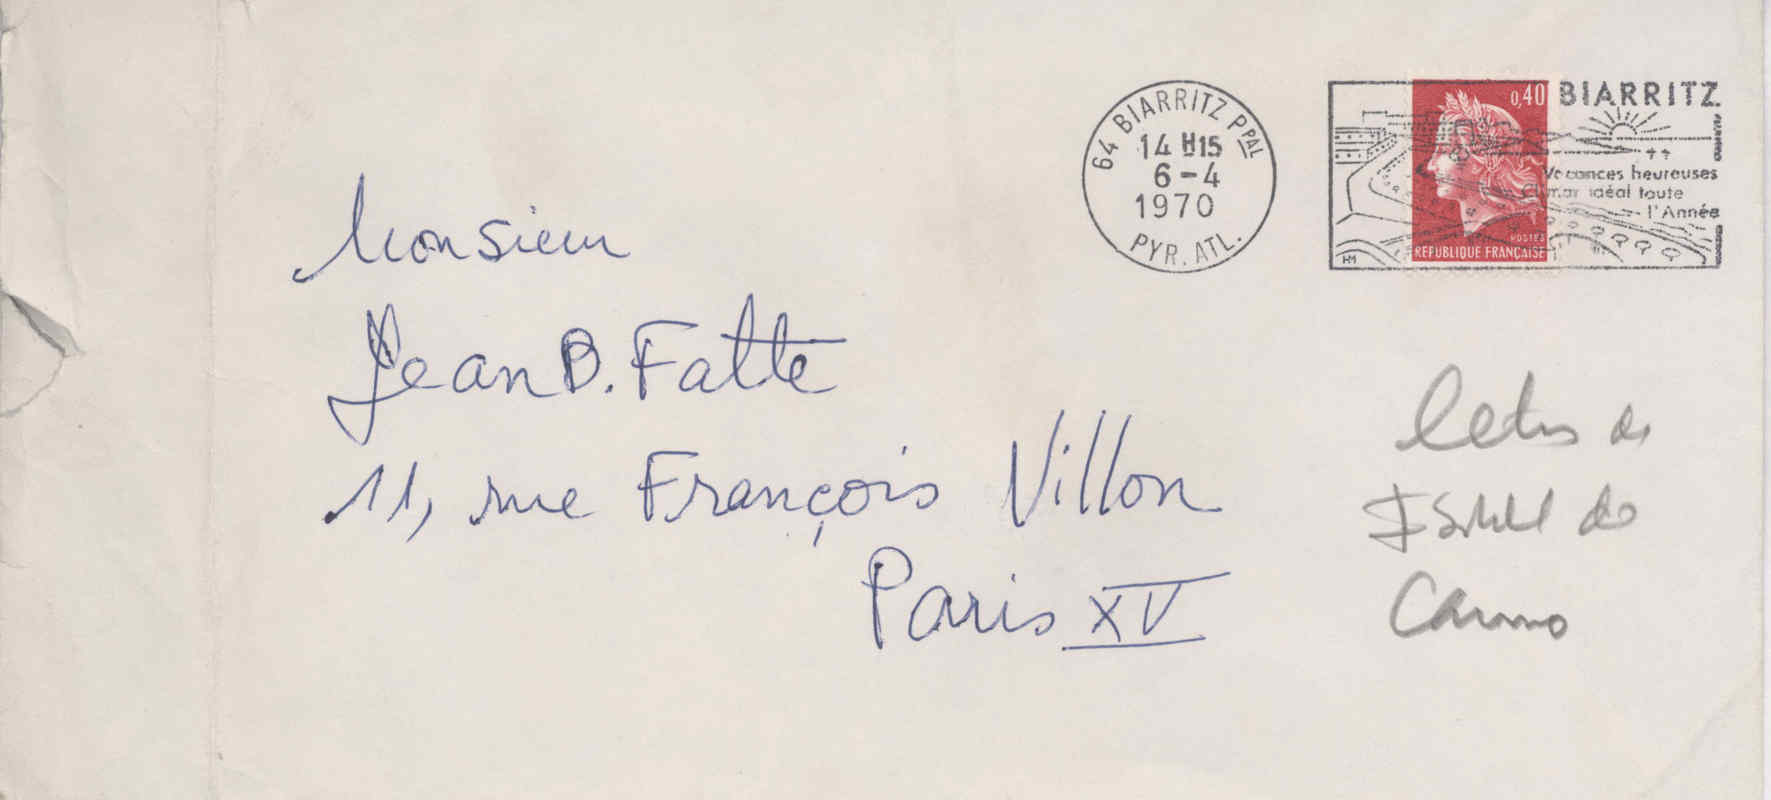 64 BIARRITZ PPAL
14 H15
6-4
1970
PYR. ATL.
BIARRITZ
Vacances heureuses
Climat idéal toute
l'Année
HM
0,40
POSTES
REPUBLIQUE FRANÇAISE
Monsieur
Jean B. Fatte
11, rue François Villon
Paris XV